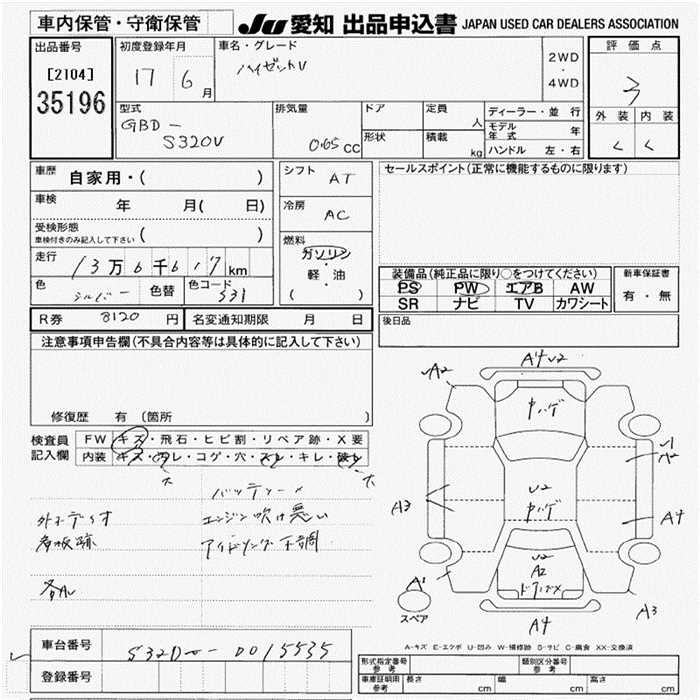 車内保管・守衛保管
JU 愛知 出品申込書 JAPAN USED CAR DEALERS ASSOCIATION
出品番号
[2104]
35196
初度登録年月
17 6月
車名・グレード
ハイゼットV
2WD
・
4WD
評価点
3
外装 内装
く く
型式
GBD-
S320V
排気量
0.65cc
ドア
形状
定員 人
積載 kg
ディーラー・並行
モデル年式 年
ハンドル 左・右
車歴 自家用・( )
車検 年 月( 日)
受検形態
車検付きのみ記入して下さい ( )
走行 13万6千617km
色 シルバー 色替 色コード S31
シフト AT
冷房 AC
燃料
ガソリン
・
軽・油
( )
セールスポイント(正常に機能するものに限ります)
装備品(純正品に限り○をつけてください)
PS PW エアB AW
SR ナビ TV カワシート
新車保証書
有・無
R券 8120円 名変通知期限 月 日
後日品
注意事項申告欄(不具合内容等は具体的に記入して下さい)
修復歴 有(箇所 )
検査員
記入欄
FW キズ・飛石・ヒビ割・リペア跡・X要
内装 キズ・ヨゴレ・コゲ・穴・スレ・キレ・破レ
バッテリー×
エンジン吹け悪い
アイドリング不調
看板跡
A4 U2
A2
ヤハゲ
U1
A2
A3
U2
ヤハゲ
A4
U2
A2
ドアガメ
A1
スペア
A3
A4
A-キズ E-エクボ U-凹み W-補修跡 S-サビ C-腐食 XX-交換済
車台番号 S320V-0015535
登録番号
形式指定番号 参考
類別区分番号 参考
車庫証明用 参考
長さ cm
幅 cm
高さ cm